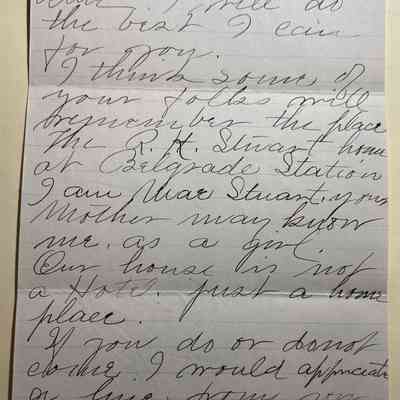 I will do
the best I can
for you.
I think some of
your folks will
remember the place
The R. H. Stuart home
at Belgrade Station
I am Mae Stuart, your
Mother may know
me, as a girl.
Our house is not
a Hotel. just a home
place.
If you do or donot
come I would appreciate
a line from you